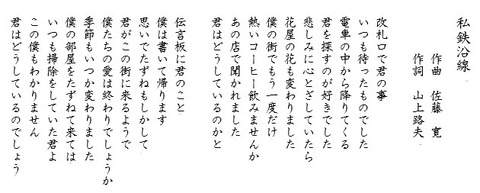 私鉄沿線
作曲 佐藤 寛
作詞 山上路夫
改札口で君の事
いつも待ったものでした
電車の中から降りてくる
君を探すのが好きでした
悲しみに心とざしていたら
花屋の花も変わりました
僕の街でもう一度だけ
熱いコーヒー飲みませんか
あの店で聞かれました
君はどうしているのかと
伝言板に君のこと
僕は書いて帰ります
思いでたずねもしかして
君がこの街に来るようで
僕たちの愛は終わりでしょうか
季節もいつか変わりました
僕の部屋をたずねて来ては
いつも掃除をしていた君よ
この僕もわかりません
君はどうしているのでしょう